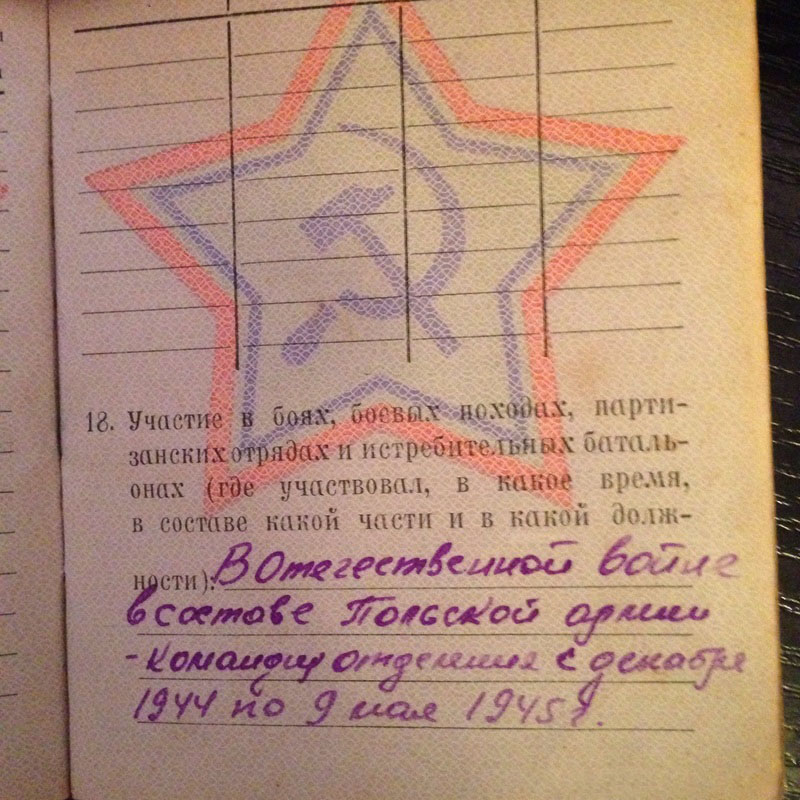 18. Участие в боях, боевых походах, парти-
занских отрядах и истребительных баталь-
онах (где участвовал, в какое время,
в составе какой части и в какой долж-
ности): В Отечественной войне
в составе Польской армии
- командир отделения с декабря
1944 по 9 мая 1945 г.